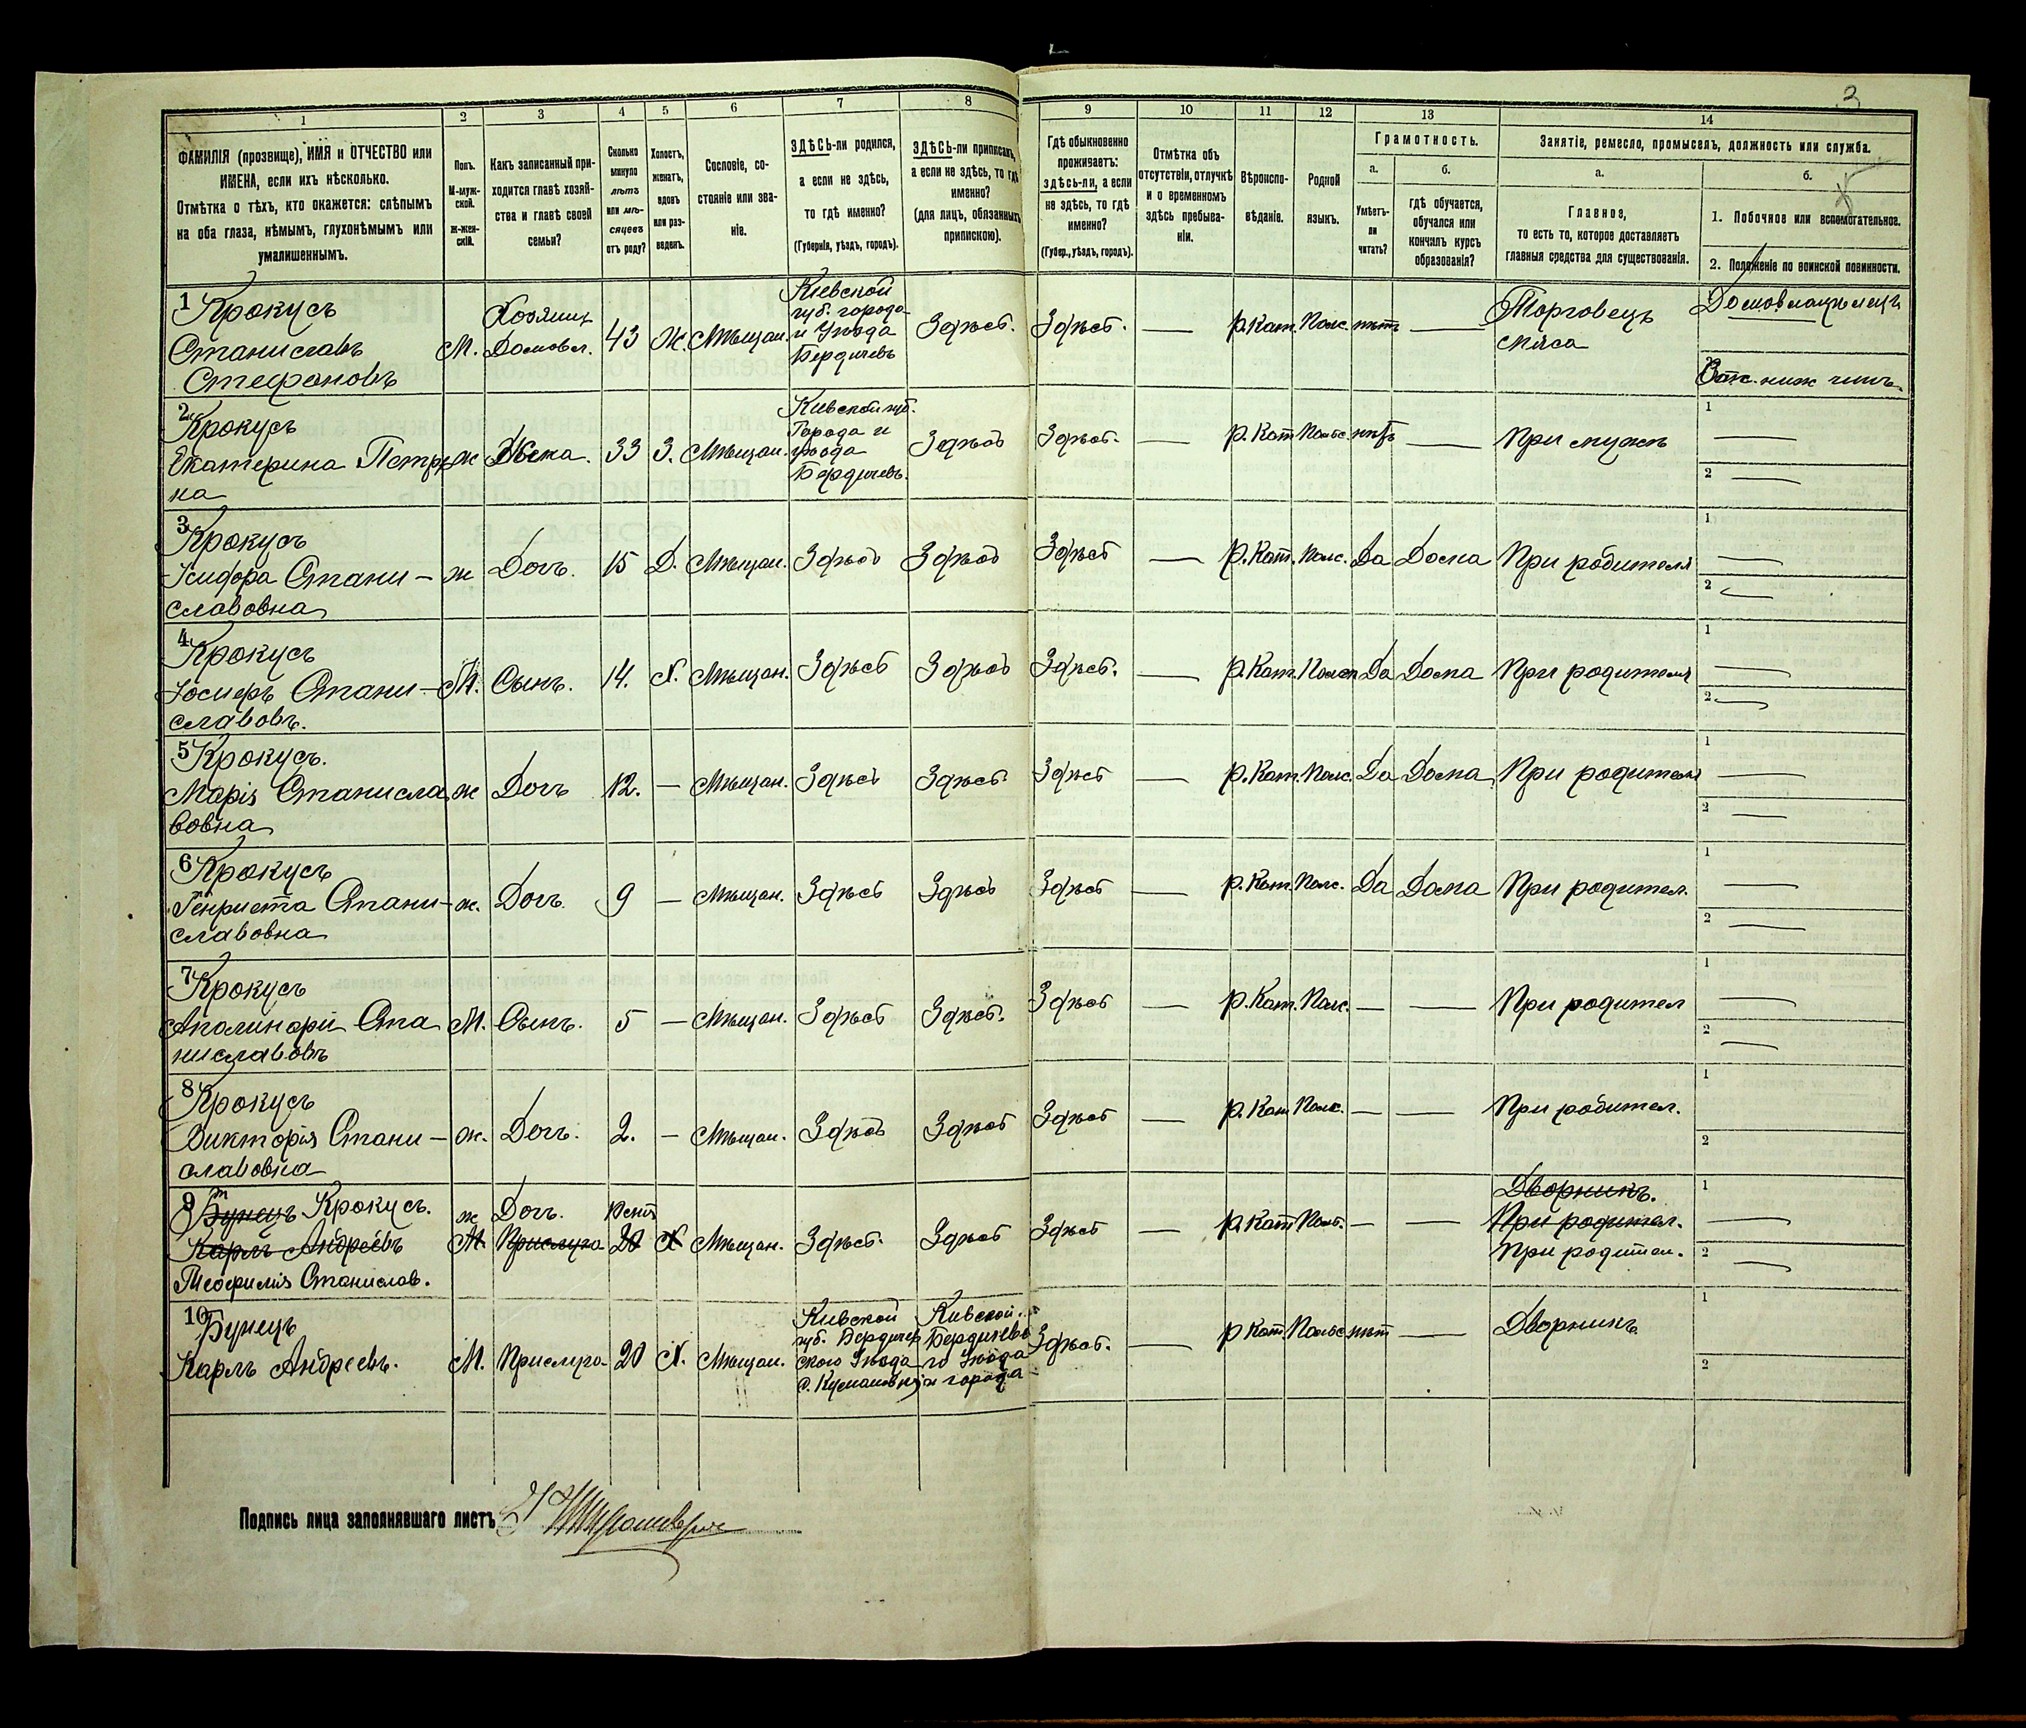 3
1 2 3 4 5 6 7 8 9 10 11 12 13 14
ФАМИЛІЯ (прозвище), ИМЯ и ОТЧЕСТВО или
ИМЕНА, если ихъ нѣсколько.
Отмѣтка о тѣхъ, кто окажется: слѣпымъ
на оба глаза, нѣмымъ, глухонѣмымъ или
умалишеннымъ.
Полъ.
М-муж-
ской.
Ж-жен-
скій.
Какъ записанный при-
ходится главѣ хозяй-
ства и главѣ своей
семьи?
Сколько
минуло
лѣтъ
или мѣ-
сяцевъ
отъ роду?
Холостъ,
женатъ,
вдовъ
или раз-
веденъ.
Сословіе, со-
стояніе или зва-
ніе.
ЗДѢСЬ-ли родился,
а если не здѣсь,
то гдѣ именно?
(Губернія, уѣздъ, городъ).
ЗДѢСЬ-ли приписанъ,
а если не здѣсь, то гдѣ
именно?
(для лицъ, обязанныхъ
припискою).
Гдѣ обыкновенно
проживаетъ:
здѣсь-ли, а если
не здѣсь, то гдѣ
именно?
(Губер., уѣздъ, городъ).
Отмѣтка объ
отсутствіи, отлучкѣ
и о временномъ
здѣсь пребыва-
ніи.
Вѣроиспо-
вѣданіе.
Родной
языкъ.
Грамотность.
а.
Умѣетъ-
ли
читать?
б.
гдѣ обучается,
обучался или
кончилъ курсъ
образованія?
Занятіе, ремесло, промыселъ, должность или служба.
а.
Главное,
то есть то, которое доставляетъ
главныя средства для существованія.
б.
1. Побочное или вспомогательное.
2. Положеніе по воинской повинности.
1 Крокусъ
Станиславъ
Стефановъ
М.
Хозяинъ
Домовл.
43 Ж. Мѣщан.
Кіевской
губ. города
и Уѣзда
Бердичевъ
Здѣсь. Здѣсь. — р.Кат. Полс. нѣтъ —
Торговецъ
мяса
Домовладѣлецъ
Зап. ниж чинъ.
2 Крокусъ
Екатерина Петров
на
ж Жена. 33 З. Мѣщан.
Кіевской губ.
Города и
уѣзда
Бердичевъ.
Здѣсь Здѣсь. — р. Кат Польс нѣтъ — При мужѣ
1 —
2 —
3 Крокусъ
Исидора Стани-
славовна
ж Дочь. 15 Д. Мѣщан. Здѣсь Здѣсь Здѣсь — р.Кат. Полс. Да Дома При родителя
1 —
2 —
4 Крокусъ
Іосифъ Стани-
славовъ.
М. Сынъ. 14. Х. Мѣщан. Здѣсь Здѣсь Здѣсь. — р.Кат. Полск Да Дома При родителя
1 —
2 —
5 Крокусъ.
Марія Станисла
вовна
ж Дочь 12. — Мѣщан. Здѣсь Здѣсь. Здѣсь — р.Кат. Полс. Да Дома При родителя
1 —
2 —
6 Крокусъ
Генриета Стани-
славовна
ж. Дочь. 9 — Мѣщан. Здѣсь Здѣсь Здѣсь — р.Кат. Полс. Да Дома При родител.
1 —
2 —
7 Крокусъ
Аполинарій Ста
ниславовъ
М. Сынъ. 5 — Мѣщан. Здѣсь Здѣсь. Здѣсь — р.Кат. Полс. — — При родител
1 —
2 —
8 Крокусъ
Викторія Стани-
славовна
ж. Дочь. 2. — Мѣщан. Здѣсь Здѣсь Здѣсь — р. Кат Полс. — — При родител.
1
2
9 Бунецъ Крокусъ.
Карлъ Андреевъ
Теофилія Станислав.
ж Дочь.
М. Прислуга 20 Х Мѣщан. Здѣсь. Здѣсь Здѣсь — р.Кат Полс. — —
Дворникъ.
При родител.
При родител.
1 —
2 —
10 Бунецъ
Карлъ Андреевъ.
М. Прислуга 20 Х. Мѣщан.
Кіевской
губ. Бердичев
ского Уѣзда
Кіевской.
Бердичевс
го Уѣзда
и города
Здѣсь. — р Кат. Польс. нѣт — Дворникъ
1
2
Подпись лица заполнявшаго листъ